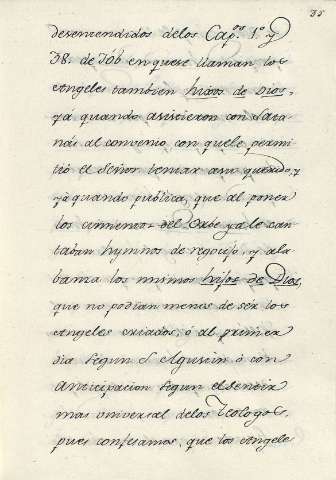 35
desentendidos delos Cap.os 1.º y
38. de Job en que se llaman los
Angeles tambien hijos de Dios,
ya quando asistieron con Sata
nás al convenio con que le permi
tió el Señor tentar a su querido, y
yá quando publica, que al poner
los cimientos del Orbe ya le can
taban hymnos de regocijo, y ala
banza los mismos hijos de Dios,
que no podian menos de ser los
Angeles criados, ó al primer
dia segun S. Agustin ó con
anticipacion segun el sentir
mas universal delos Teologos,
pues confesamos, que los Angeles